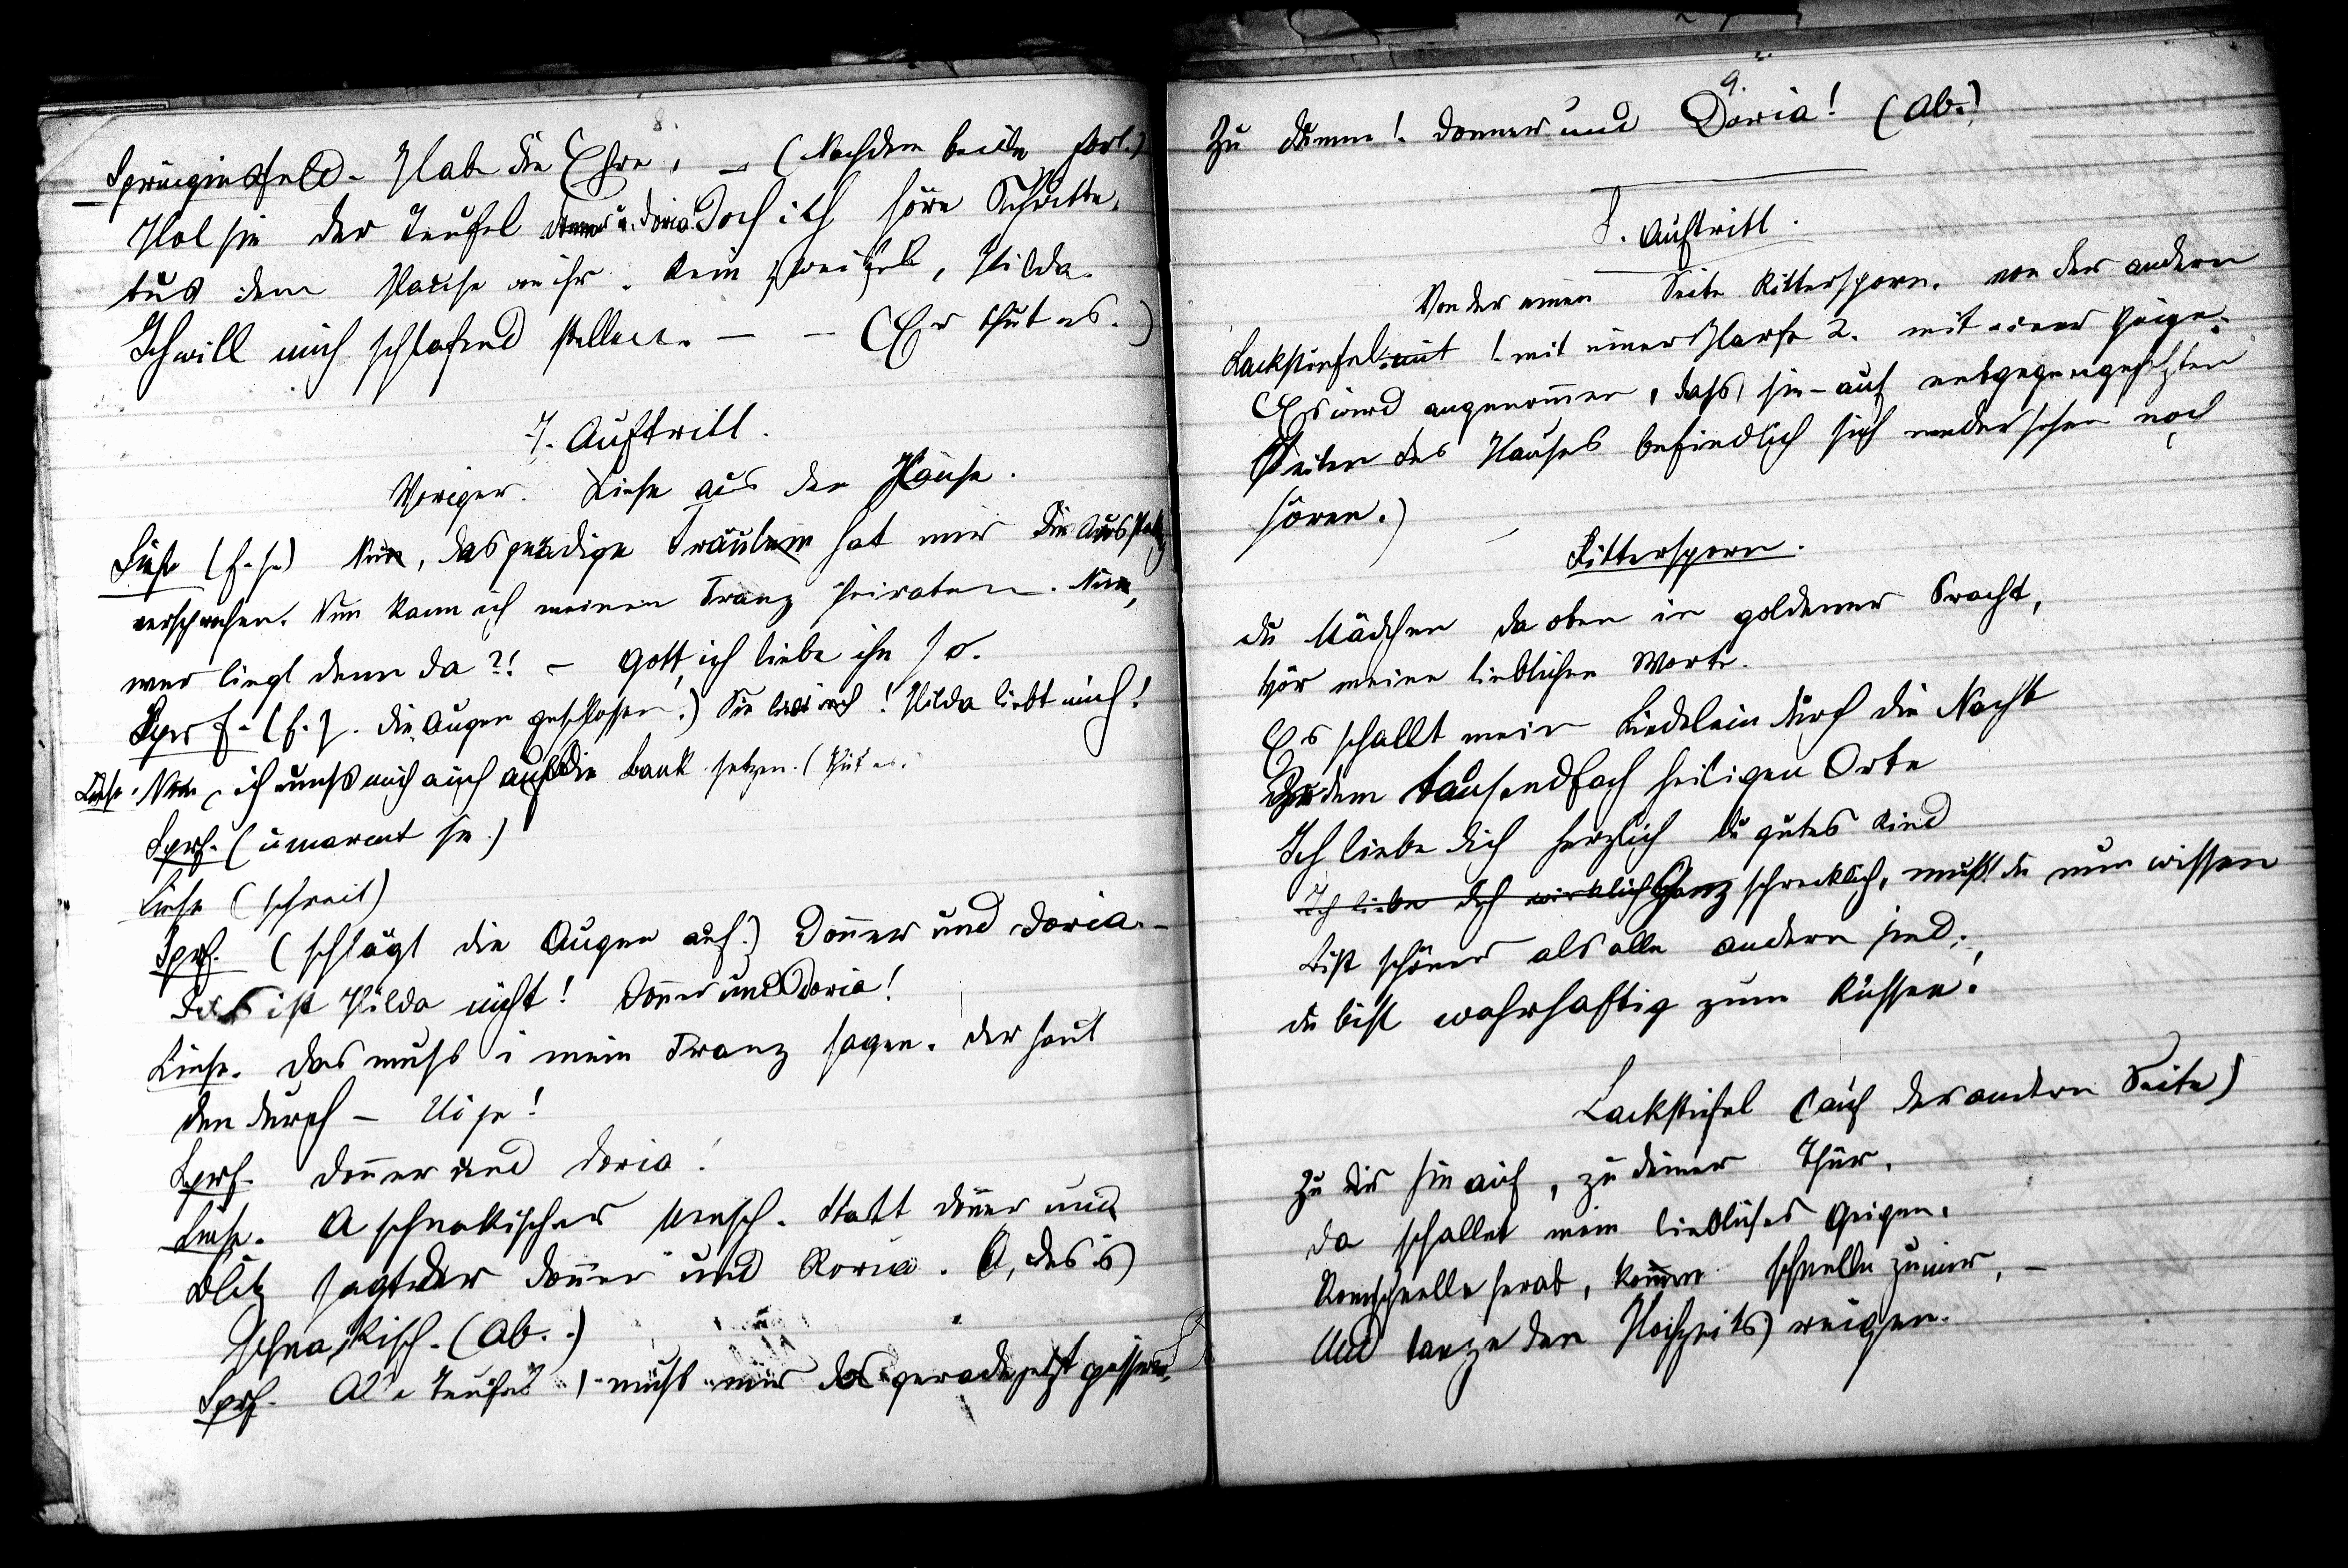 8.
Springinsfeld. Habe die Ehre, – (Nachdem beide fort.)
Hol sie der Teufel Donner u. Doria. Doch ich höre Schritte,
Aus dem Hause von ihr. Kein Zweifel, Hilda.
Ich will mich schlafend stellen. – – (Er thut es.)
7. Auftritt.
Voriger. Liese aus dem Hause.
Liese (f. s.) Nun, das gnädige Fräulein hat mir die
versprochen. Nun kann ich meinen Franz heiraten. Nun,
wer liegt denn da?! – Gott, ich liebe ihn so.
Spr f. (f. s. die Augen geschlossen.) Sie liebt mich! Hilda liebt mich!
Liese. Nun, ich muß mich auch auf die Bank setzen. (Thut es.
Sprf. (umarmt sie.)
Liese (schreit)
Sprf. (schlägt die Augen auf.) Donner und Doria. –
Das ist Hilda nicht! Donner und Doria!
Liese. Das muß i mein Franz sagen. Der haut
den durch – Ui je!
Sprf. Donner und Doria!
Liese. A schnakischer Mensch. Statt Donner und
Blitz sagt der Donner und Doria. A, des is
schnakisch. (Ab.)
Sprf. Alle Teufel, muß mir das gerade jetzt passieren.
9.
Zu dumm! Donner und Doria! (Ab.)
8. Auftritt.
Von der einen Seite Rittersporn, von der andern
Lackstiefel. mit 1. mit einer Harfe 2. mit einer Geige.
Es wird angenommen, daß sie auf entgegengesetzten
Seiten des Hauses befindlich sich weder sehen noch
hören.)
Rittersporn.
Du Mädchen da oben in goldener Pracht,
Hör meine lieblichen Worte.
Es schallt mein Liedelein durch die Nacht
Zu dem tausendfach heiligen Orte
Ich liebe dich herzlich du gutes Kind
Ich liebe dich wirklich Ganz schrecklich, mußt du nun wissen
Bist schöner als alle andern sind,
Du bist wahrhaftig zum Küssen!
Lackstiefel (auf der andern Seite)
Zu dir hinauf, zu deiner Thür,
Da schallet mein liebliches Geigen,
Komschnelle herab, komme schnelle zu mir, –
Und tanze den Hochzeitsreigen.